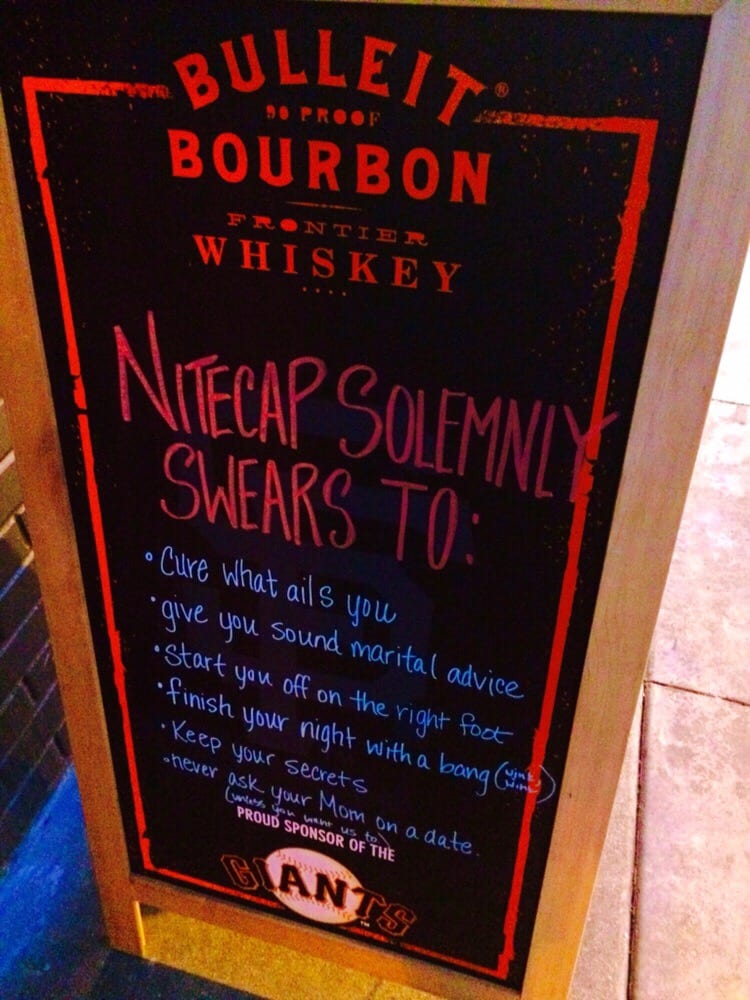 BULLEIT®
90 PROOF
BOURBON
FRONTIER
WHISKEY
NITECAP SOLEMNLY
SWEARS TO:
• Cure what ails you
• give you sound marital advice
• Start you off on the right foot
• finish your night with a bang (wink wink)
• Keep your secrets
• never ask your Mom on a date.
(unless you want us to)
PROUD SPONSOR OF THE
GIANTS™